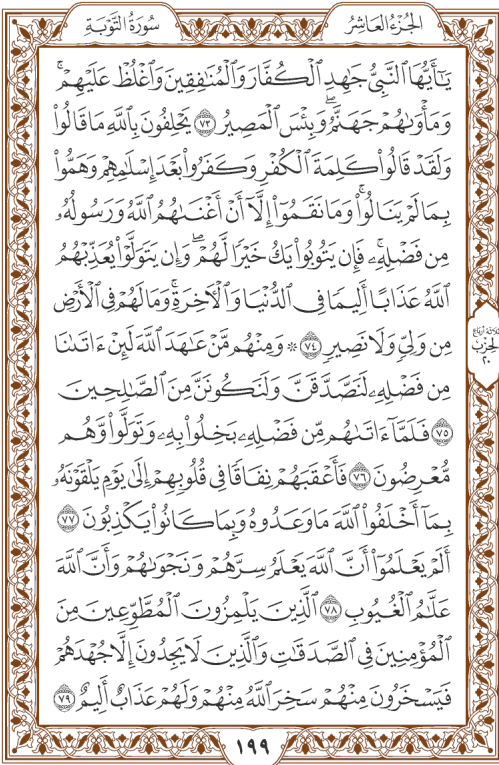 الجُزْءُ العَاشِرُ
سُورَةُ التَّوْبَةِ
يَـٰٓأَيُّهَا ٱلنَّبِىُّ جَـٰهِدِ ٱلْكُفَّارَ وَٱلْمُنَـٰفِقِينَ وَٱغْلُظْ عَلَيْهِمْ ۚ
وَمَأْوَىٰهُمْ جَهَنَّمُ ۖ وَبِئْسَ ٱلْمَصِيرُ ٧٣ يَحْلِفُونَ بِٱللَّهِ مَا قَالُوا۟
وَلَقَدْ قَالُوا۟ كَلِمَةَ ٱلْكُفْرِ وَكَفَرُوا۟ بَعْدَ إِسْلَـٰمِهِمْ وَهَمُّوا۟
بِمَا لَمْ يَنَالُوا۟ ۚ وَمَا نَقَمُوٓا۟ إِلَّآ أَنْ أَغْنَىٰهُمُ ٱللَّهُ وَرَسُولُهُۥ
مِن فَضْلِهِۦ ۚ فَإِن يَتُوبُوا۟ يَكُ خَيْرًا لَّهُمْ ۖ وَإِن يَتَوَلَّوْا۟ يُعَذِّبْهُمُ
ٱللَّهُ عَذَابًا أَلِيمًا فِى ٱلدُّنْيَا وَٱلْـَٔاخِرَةِ ۚ وَمَا لَهُمْ فِى ٱلْأَرْضِ
مِن وَلِىٍّ وَلَا نَصِيرٍ ٧٤ ۞ وَمِنْهُم مَّنْ عَـٰهَدَ ٱللَّهَ لَئِنْ ءَاتَىٰنَا
مِن فَضْلِهِۦ لَنَصَّدَّقَنَّ وَلَنَكُونَنَّ مِنَ ٱلصَّـٰلِحِينَ
٧٥ فَلَمَّآ ءَاتَىٰهُم مِّن فَضْلِهِۦ بَخِلُوا۟ بِهِۦ وَتَوَلَّوا۟ وَّهُم
مُّعْرِضُونَ ٧٦ فَأَعْقَبَهُمْ نِفَاقًا فِى قُلُوبِهِمْ إِلَىٰ يَوْمِ يَلْقَوْنَهُۥ
بِمَآ أَخْلَفُوا۟ ٱللَّهَ مَا وَعَدُوهُ وَبِمَا كَانُوا۟ يَكْذِبُونَ ٧٧
أَلَمْ يَعْلَمُوٓا۟ أَنَّ ٱللَّهَ يَعْلَمُ سِرَّهُمْ وَنَجْوَىٰهُمْ وَأَنَّ ٱللَّهَ
عَلَّـٰمُ ٱلْغُيُوبِ ٧٨ ٱلَّذِينَ يَلْمِزُونَ ٱلْمُطَّوِّعِينَ مِنَ
ٱلْمُؤْمِنِينَ فِى ٱلصَّدَقَـٰتِ وَٱلَّذِينَ لَا يَجِدُونَ إِلَّا جُهْدَهُمْ
فَيَسْخَرُونَ مِنْهُمْ ۙ سَخِرَ ٱللَّهُ مِنْهُمْ وَلَهُمْ عَذَابٌ أَلِيمٌ ٧٩
ثلاثة أرباع
الحزب
٢٠
١٩٩